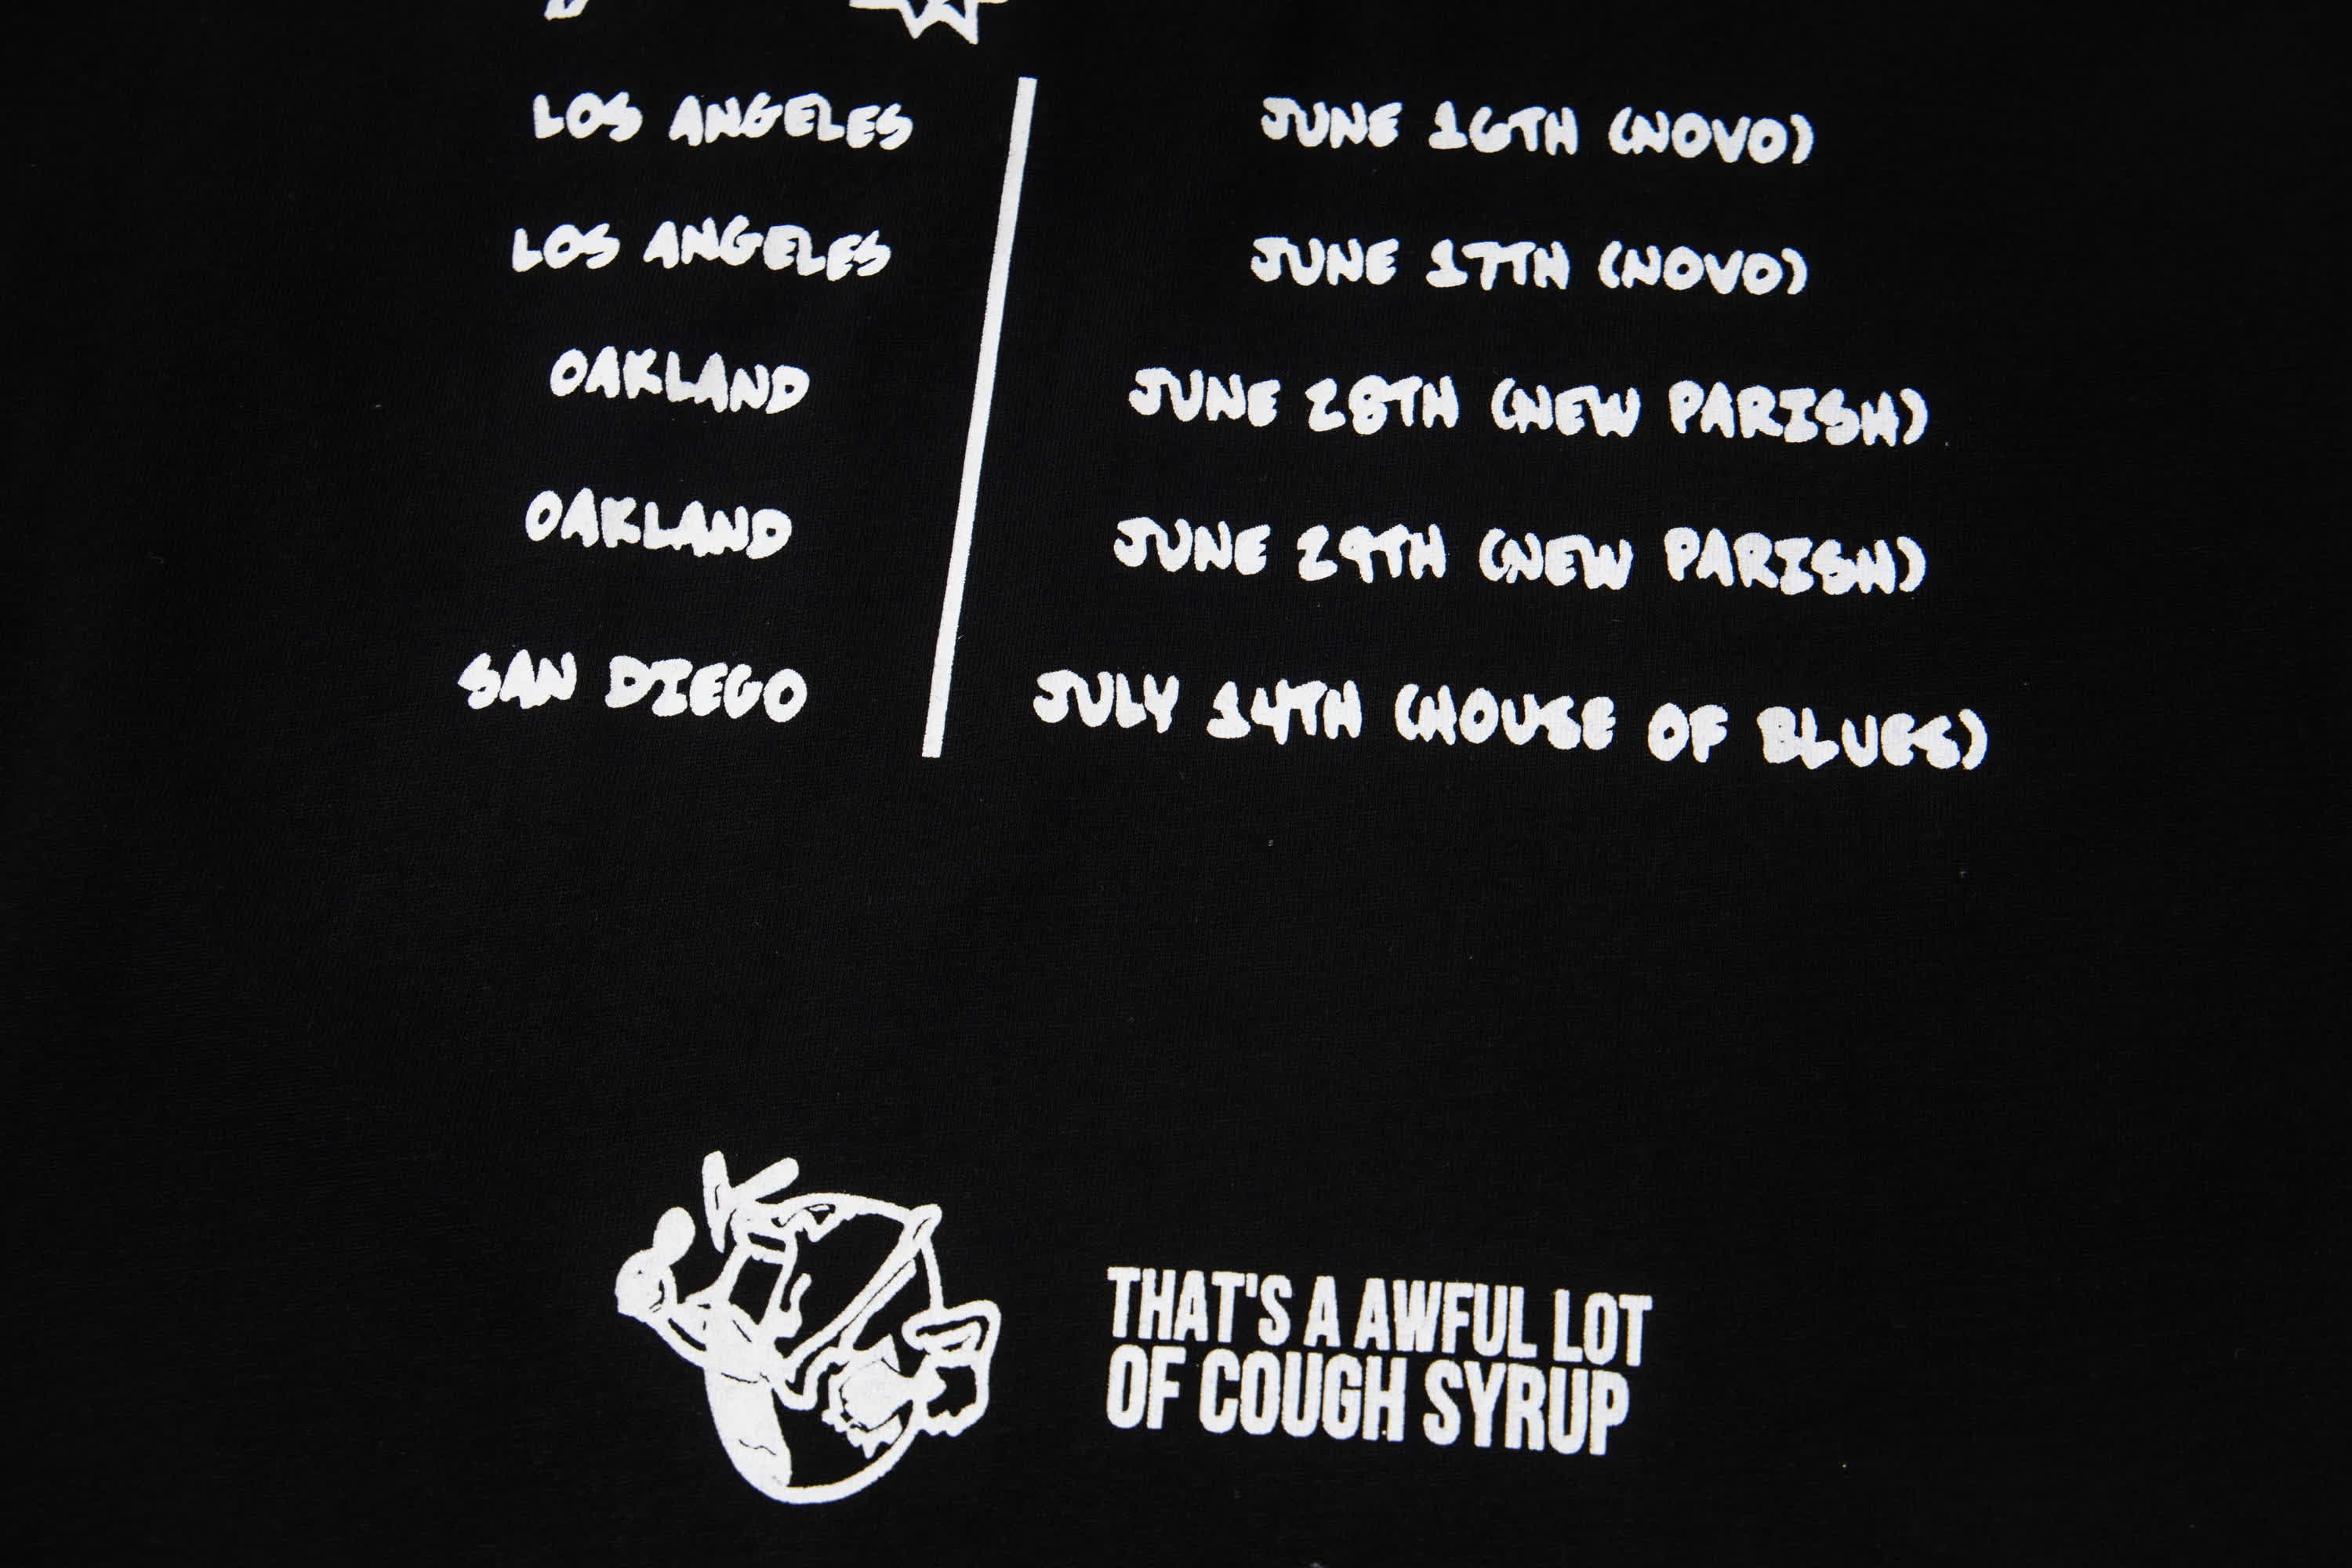 LOS ANGELES JUNE 16TH (NOVO)
LOS ANGELES JUNE 17TH (NOVO)
OAKLAND JUNE 28TH (NEW PARISH)
OAKLAND JUNE 29TH (NEW PARISH)
SAN DIEGO JULY 14TH (HOUSE OF BLUES)
THAT'S A AWFUL LOT
OF COUGH SYRUP